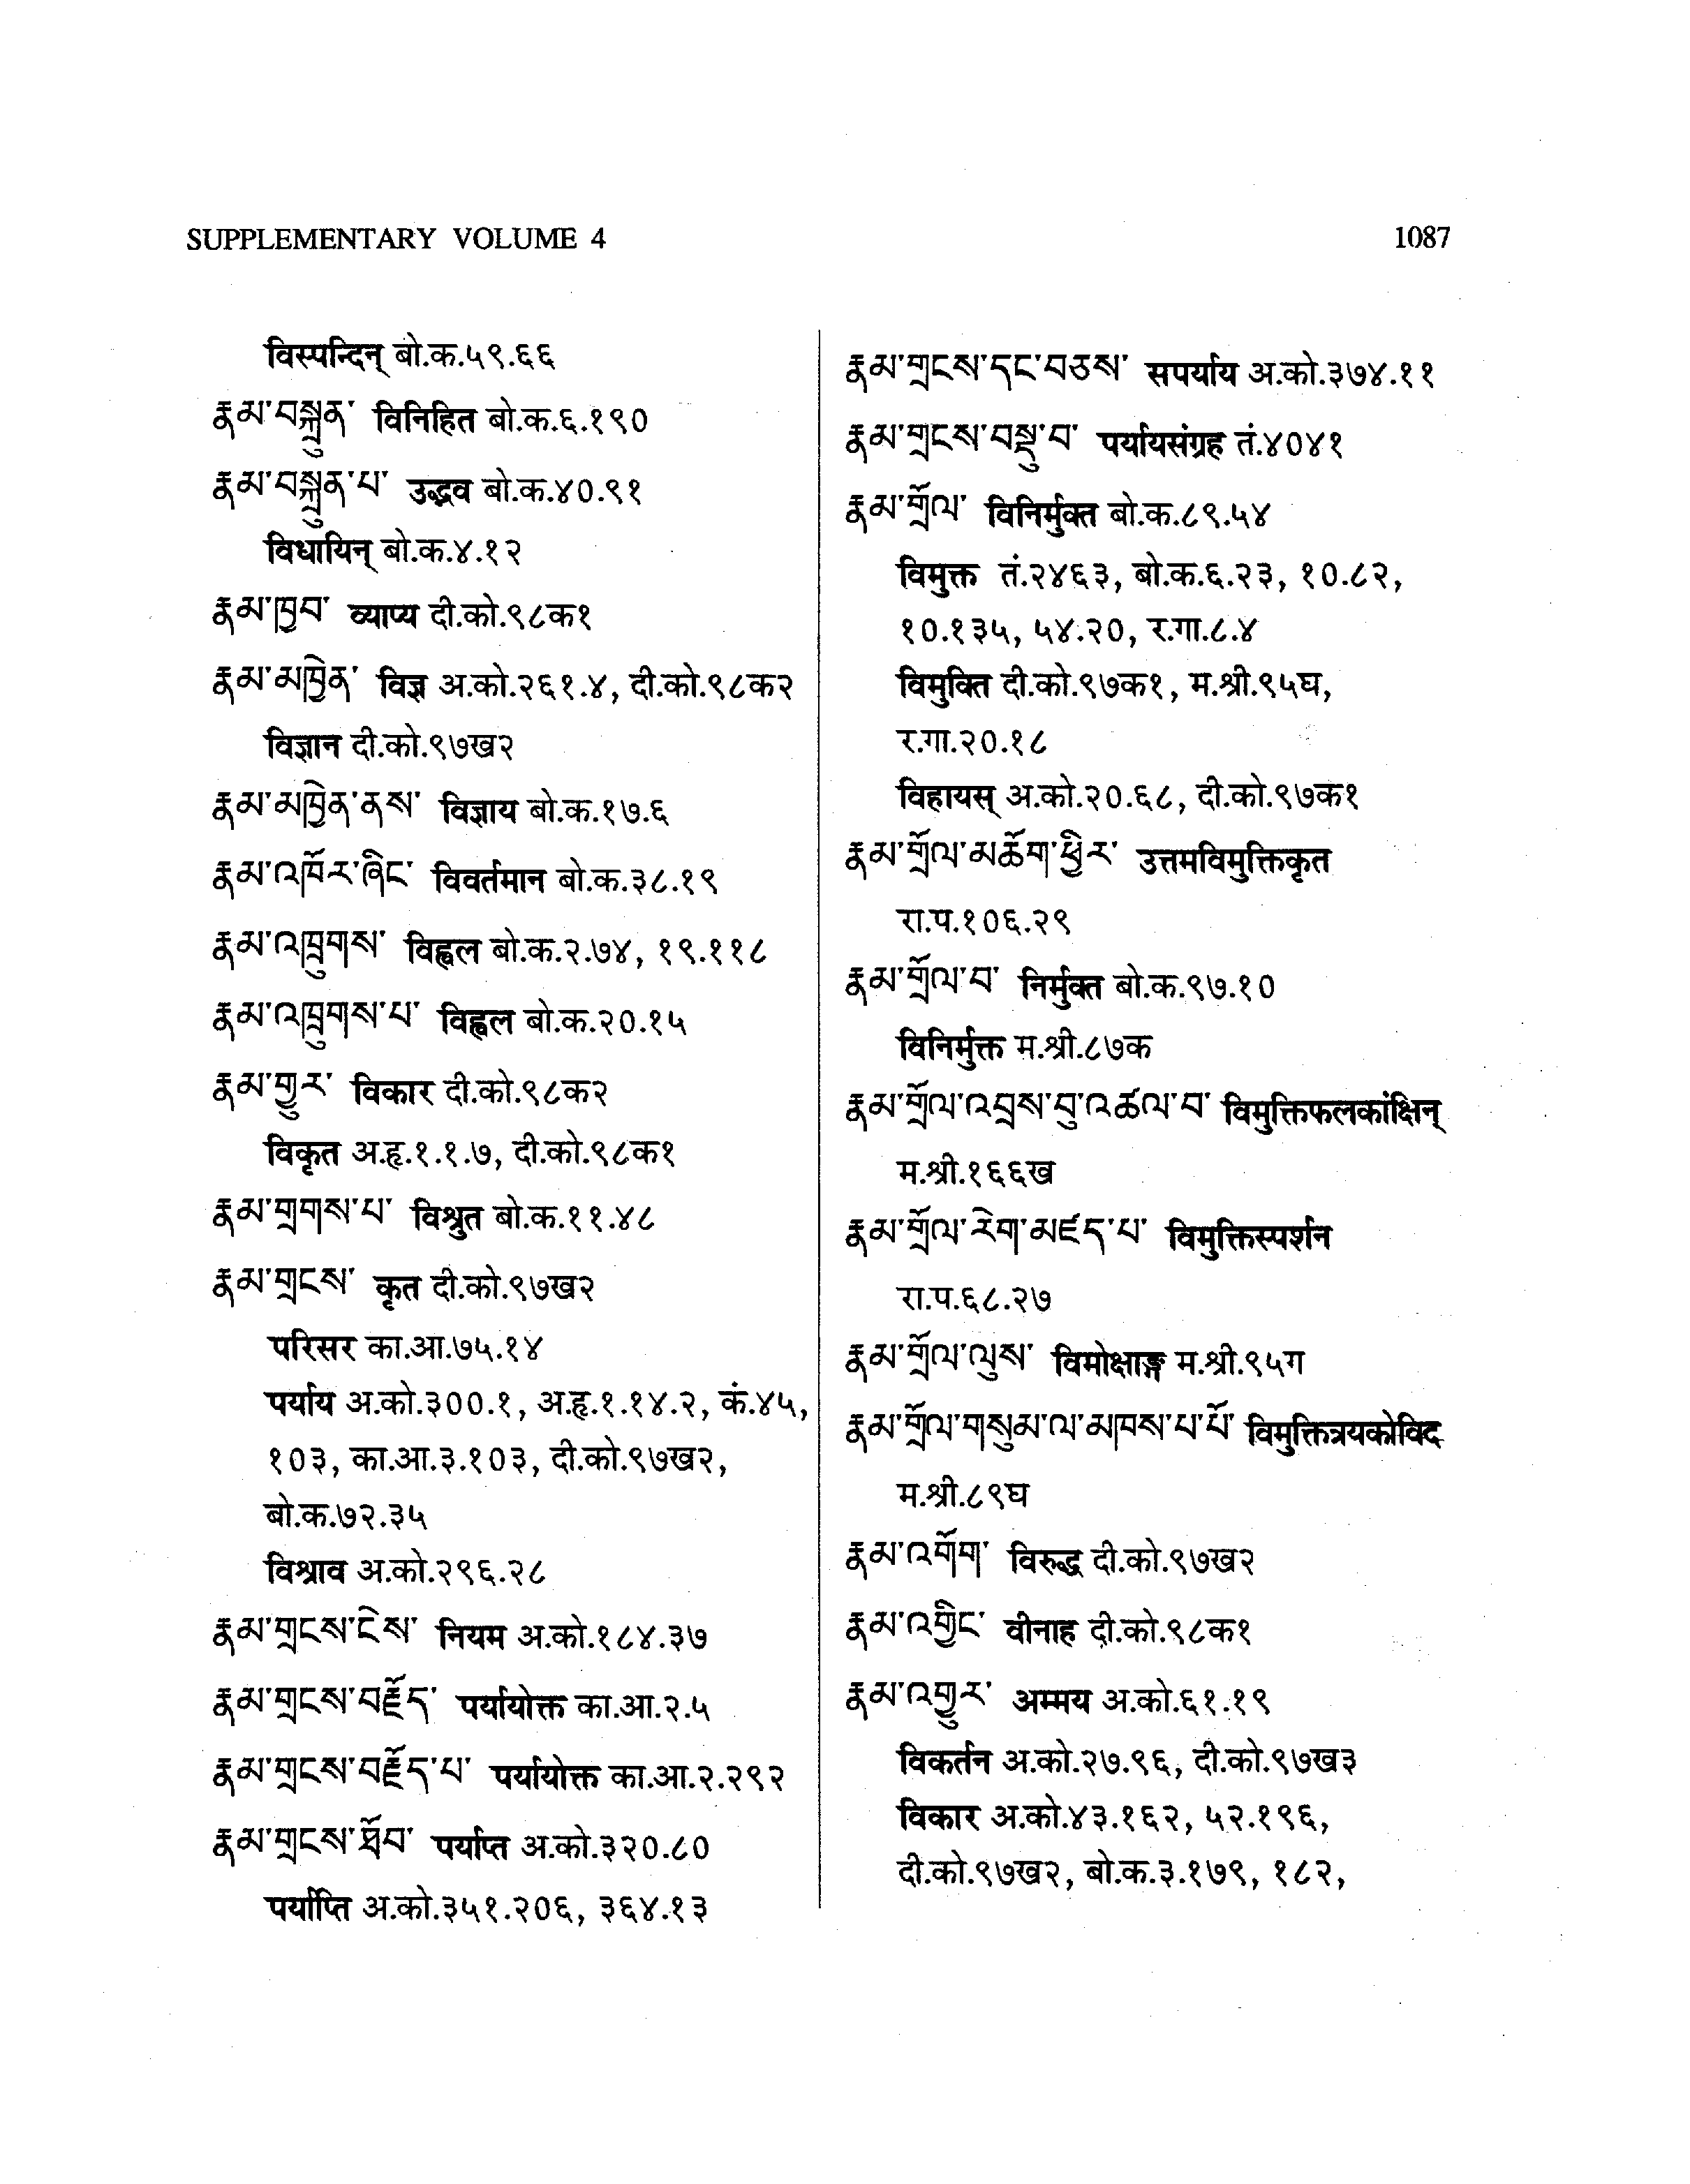 SUPPLEMENTARY VOLUME 4
1087
विस्पन्दिन् बो.क.५९.६६
རྣམ་བསྐྲུན་ विनिहित बो.क.६.१९०
རྣམ་བསྐྲུན་པ་ उद्भव बो.क.४०.९१
विधायिन् बो.क.४.१२
རྣམ་ཁྱབ་ व्याप्य दी.को.९८क१
རྣམ་མཁྱེན་ विज्ञ अ.को.२६१.४, दी.को.९८क२
विज्ञान दी.को.९७ख२
རྣམ་མཁྱེན་ནས་ विज्ञाय बो.क.१७.६
རྣམ་འཁོར་ཞིང་ विवर्तमान बो.क.३८.१९
རྣམ་འཁྲུགས་ विह्वल बो.क.२.७४, १९.११८
རྣམ་འཁྲུགས་པ་ विह्वल बो.क.२०.१५
རྣམ་གྱུར་ विकार दी.को.९८क२
विकृत अ.हृ.१.१.७, दी.को.९८क१
རྣམ་གྲགས་པ་ विश्रुत बो.क.११.४८
རྣམ་གྲངས་ कृत दी.को.९७ख२
परिसर का.आ.७५.१४
पर्याय अ.को.३००.१, अ.हृ.१.१४.२, कं.४५,
१०३, का.आ.३.१०३, दी.को.९७ख२,
बो.क.७२.३५
विश्राव अ.को.२९६.२८
རྣམ་གྲངས་ངེས་ नियम अ.को.१८४.३७
རྣམ་གྲངས་བརྗོད་ पर्यायोक्त का.आ.२.५
རྣམ་གྲངས་བརྗོད་པ་ पर्यायोक्त का.आ.२.२९२
རྣམ་གྲངས་ཐོབ་ पर्याप्त अ.को.३२०.८०
पर्याप्ति अ.को.३५१.२०६, ३६४.१३
རྣམ་གྲངས་དང་བཅས་ सपर्याय अ.को.३७४.११
རྣམ་གྲངས་བསྡུ་བ་ पर्यायसंग्रह तं.४०४१
རྣམ་གྲོལ་ विनिर्मुक्त बो.क.८९.५४
विमुक्त तं.२४६३, बो.क.६.२३, १०.८२,
१०.१३५, ५४.२०, र.गा.८.४
विमुक्ति दी.को.९७क१, म.श्री.९५घ,
र.गा.२०.१८
विहायस् अ.को.२०.६८, दी.को.९७क१
རྣམ་གྲོལ་མཆོག་ཕྱིར་ उत्तमविमुक्तिकृत
रा.प.१०६.२९
རྣམ་གྲོལ་བ་ निर्मुक्त बो.क.९७.१०
विनिर्मुक्त म.श्री.८७क
རྣམ་གྲོལ་འབྲས་བུ་འཚལ་བ་ विमुक्तिफलकांक्षिन्
म.श्री.१६६ख
རྣམ་གྲོལ་རེག་མཛད་པ་ विमुक्तिस्पर्शन
रा.प.६८.२७
རྣམ་གྲོལ་ལུས་ विमोक्षाङ्ग म.श्री.९५ग
རྣམ་གྲོལ་གསུམ་ལ་མཁས་པ་པོ་ विमुक्तित्रयकोविद
म.श्री.८९घ
རྣམ་འགོག་ विरुद्ध दी.को.९७ख२
རྣམ་འགྱིང་ वीनाह दी.को.९८क१
རྣམ་འགྱུར་ अम्मय अ.को.६१.१९
विकर्तन अ.को.२७.९६, दी.को.९७ख३
विकार अ.को.४३.१६२, ५२.१९६,
दी.को.९७ख२, बो.क.३.१७९, १८२,